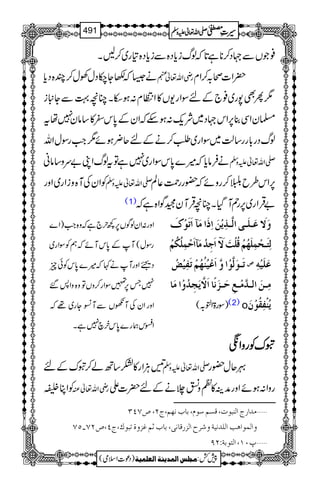 سیرتِ مصطفیٰ صلی اللہ تعالیٰ علیہ وسلم
491
فوجوں سے جہاد کرنا ہے تاکہ لوگ زیادہ سے زیادہ تیاری کرلیں۔
حضرات صحابہ کرام رضی اللہ تعالیٰ عنہم نے جیسا کہ لکھا جاچکا دل کھول کر چندہ دیا
مگر پھر بھی پوری فوج کے لئے سواریوں کا انتظام نہ ہوسکا۔ چنانچہ بہت سے جانباز
مسلمان اسی بنا پر اس جہاد میں شریک نہ ہوسکے کہ ان کے پاس سفر کا سامان نہیں تھا یہ
لوگ دربار رسالت میں سواری طلب کرنے کے لئے حاضر ہوئے مگر جب رسول اللہ
صلی اللہ تعالیٰ علیہ وسلم نے فرمایا کہ میرے پاس سواری نہیں ہے تو یہ لوگ اپنی بے سروسامانی
پر اس طرح بلبلا کر روئے کہ حضور رحمت عالم صلی اللہ تعالیٰ علیہ وسلم کو ان کی آہ وزاری اور
بے قراری پر رحم آگیا۔ چنانچہ قرآن مجید گواہ ہے کہ (1)
وَلَا عَلَى الَّذِيْنَ اِذَا مَآ اَتَوْكَ
لِتَحْمِلَهُمْ قُلْتَ لَآ اَجِدُ مَآ اَحْمِلُكُمْ
عَلَيْهِ ص تَوَلَّوْا وَّاَعْيُنُهُمْ تَفِيْضُ
مِنَ الدَّمْعِ حَزَنًا اَلَّا يَجِدُوْا مَا
يُنْفِقُوْنَ o (2) (سورۃ التوبہ)
اور نہ ان لوگوں پر کچھ حرج ہے کہ وہ جب (اے
رسول) آپ کے پاس آئے کہ ہم کو سواری
دیجئے اور آپ نے کہا کہ میرے پاس کوئی چیز
نہیں جس پر تمہیں سوار کروں تو وہ واپس گئے
اور ان کی آنکھوں سے آنسو جاری تھے کہ
افسوس ہمارے پاس خرچ نہیں ہے۔
تبوک کو روانگی
بہرحال حضور صلی اللہ تعالیٰ علیہ وسلم تیس ہزار کا لشکر ساتھ لے کر تبوک کے لئے
روانہ ہوئے اور مدینہ کا نظم و نسق چلانے کے لئے حضرت علی رضی اللہ تعالیٰ عنہ کو اپنا خلیفہ
مدارج النبوت، قسم سوم، باب نہم، ج۲، ص۳۴۷
والمواهب اللدنية وشرح الزرقانی، باب ثم غزوة تبوك، ج٤، ص۷۲۔۷۵
پ۱۰، التوبة: ۹۲
پیش کش: مجلس المدینة العلمیة (دعوت اسلامی)